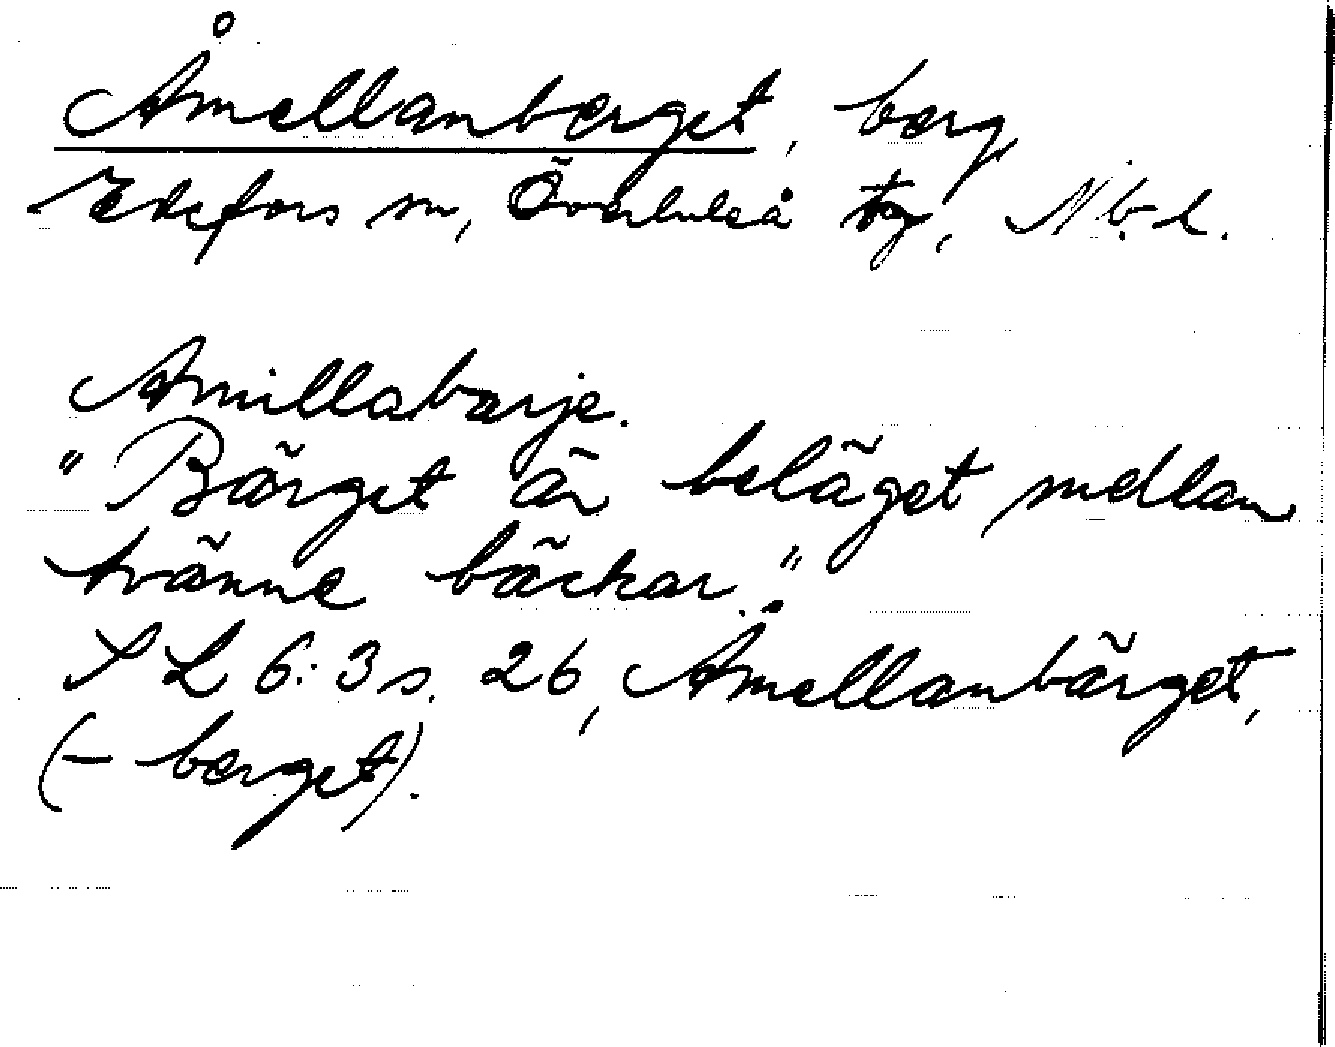 Åmellanberget, berg
Edefors sn, Överluleå tg, Nb. l.
Amillabarje.
"Bärget är beläget mellan
tvänne bäckar."
SL 6:3 s. 26, Åmellanbärget,
(- berget).